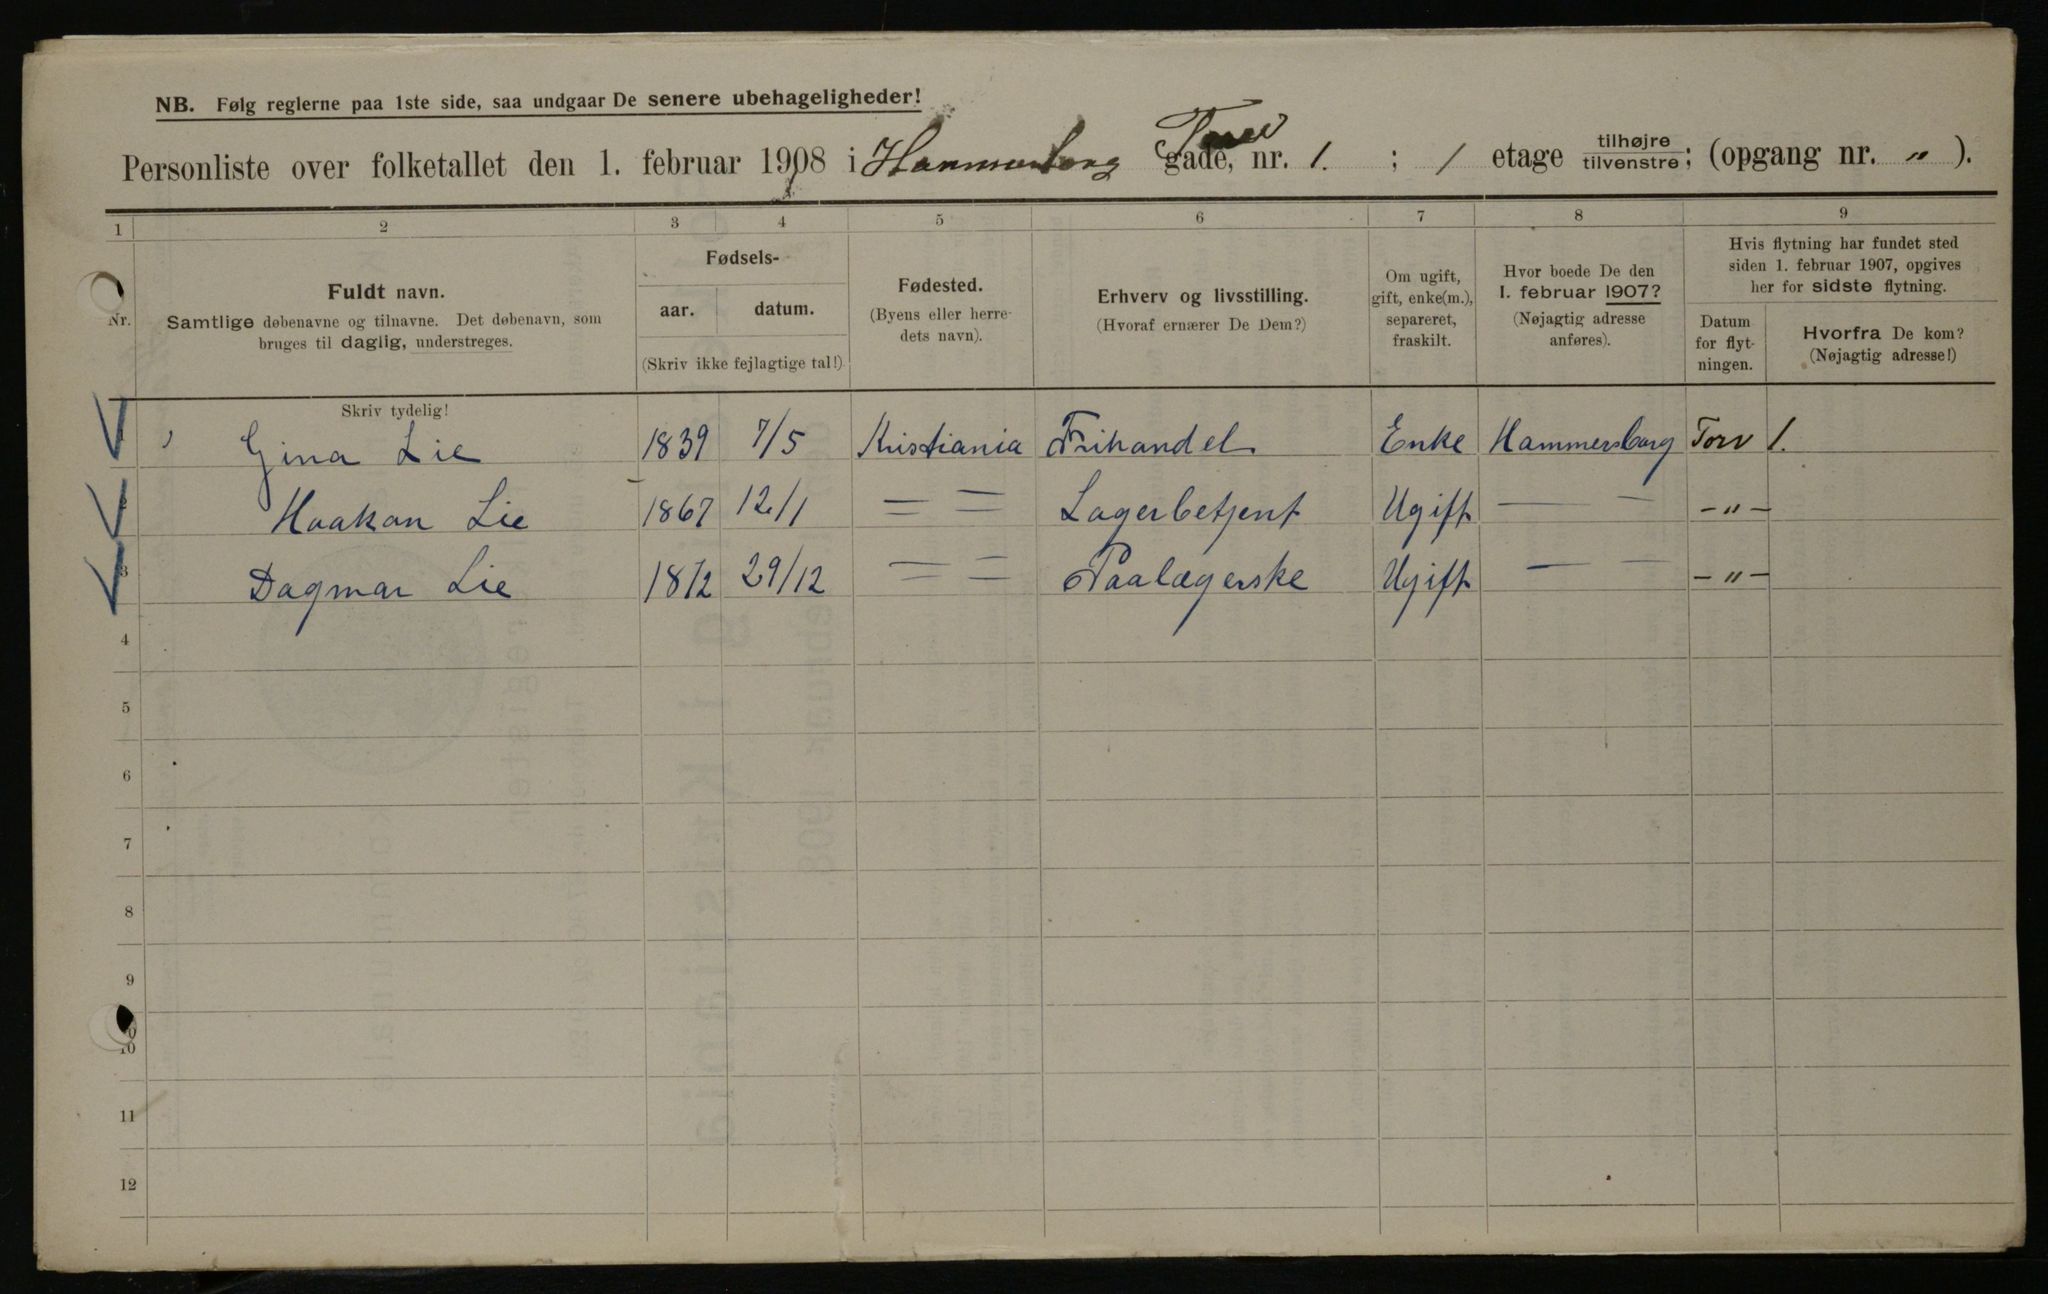 NB. Følg reglerne paa 1ste side, saa undgaar De senere ubehageligheder!
Personliste over folketallet den 1. februar 1908 i Hammersborg Torv gade, nr. 1. ; 1 etage tilhøjre tilvenstre; (opgang nr. „ ).
1 2 3 4 5 6 7 8 9
Nr.
Fuldt navn.
Samtlige døbenavne og tilnavne. Det døbenavn, som
bruges til daglig, understreges.
Fødsels-
aar. datum.
(Skriv ikke fejlagtige tal!)
Fødested.
(Byens eller herre-
dets navn).
Erhverv og livsstilling.
(Hvoraf ernærer De Dem?)
Om ugift,
gift, enke(m.),
separeret,
fraskilt.
Hvor boede De den
1. februar 1907?
(Nøjagtig adresse
anføres).
Hvis flytning har fundet sted
siden 1. februar 1907, opgives
her for sidste flytning.
Datum
for flyt-
ningen.
Hvorfra De kom?
(Nøjagtig adresse!)
Skriv tydelig!
Gina Lie 1839 7/5 Kristiania Frihandel Enke Hammersborg Torv 1.
Haakon Lie 1867 12/1 = = Lagerbetjent Ugift — — -„-
3 Dagmar Lie 1872 29/12 = = Paalægerske Ugift — — -„-
4
5
6
7
8
9
10
11
12